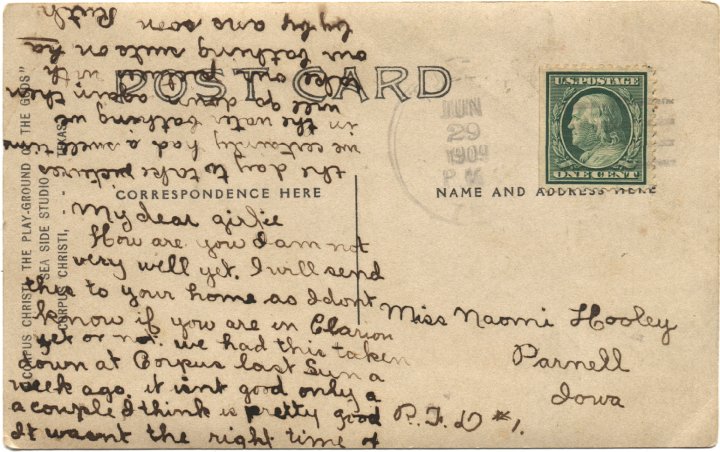 POST CARD
JUN
29
1909
P M
U.S. POSTAGE
ONE CENT
CORRESPONDENCE HERE
NAME AND ADDRESS HERE
CORPUS CHRISTI THE PLAY-GROUND OF THE GODS"
SEA SIDE STUDIO
CORPUS CHRISTI, - - TEXAS
My dear girlie
How are you I am not
very well yet. I will send
this to your home as I dont
know if you are in Clarion
yet or not. we had this taken
down at Corpus last Sun a
week ago. it isnt good only a
a couple I think is pretty good
It wasnt the right time of
the day to take pictures
we certainly had a swell time
in the water bathing we
will go down again then
our picture in th
our bathing suits on ha
by by ans soon
Ruth
Miss Naomi Hooley
Parnell
Iowa
R.F.D #1.